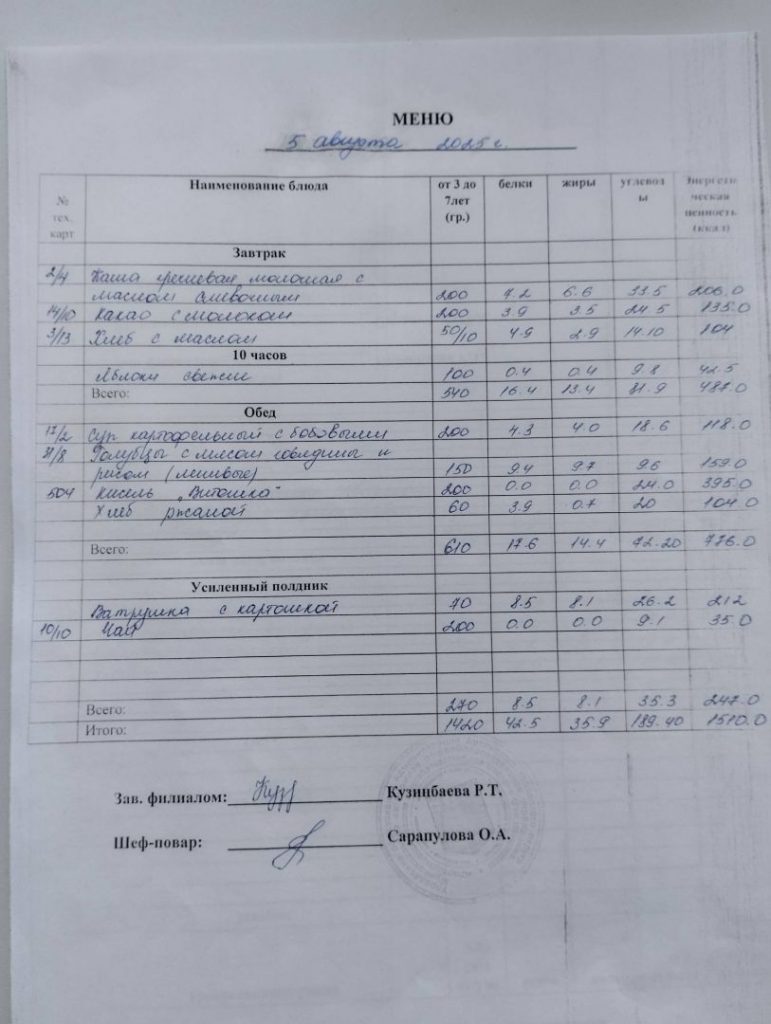 МЕНЮ
5 августа 2025 г.
№ тех. карт Наименование блюда от 3 до 7лет (гр.) белки жиры углевод ы Энергети ческая ценность (ккал)
Завтрак
2/4 Каша гречневая молочная с
маслом сливочным 200 7.2 6.6 33.5 206.0
14/10 Какао с молоком 200 3.9 3.5 24.5 135.0
3/13 Хлеб с маслом 50/10 4.9 2.9 14.10 104
10 часов
Яблоки свежие 100 0.4 0.4 9.8 42.5
Всего: 540 16.4 13.4 81.9 487.0
Обед
Суп картофельный с бобовыми 200 4.3 4.0 18.6 118.0
Голубцы с мясом говядины и
рисом (ленивые) 150 9.4 9.7 9.6 159.0
504 Кисель „Витошка" 200 0.0 0.0 24.0 395.0
Хлеб ржаной 60 3.9 0.7 20 104.0
Всего: 610 17.6 14.4 72.20 776.0
Усиленный полдник
Ватрушка с картошкой 70 8.5 8.1 26.2 212
10/10 Чай 200 0.0 0.0 9.1 35.0
Всего: 270 8.5 8.1 35.3 247.0
Итого: 1420 42.5 35.9 189.40 1510.0
Зав. филиалом: Кузинбаева Р.Т.
Шеф-повар: Сарапулова О.А.